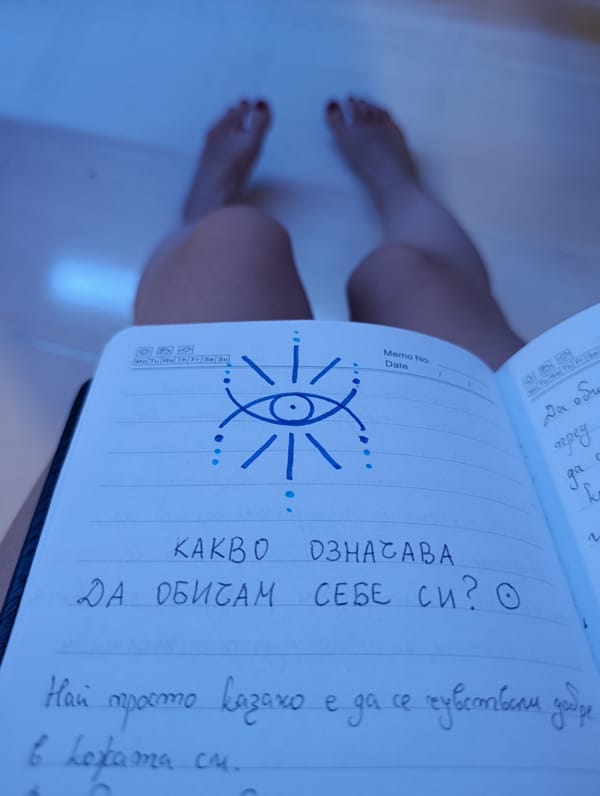 Mo Tu We Th Fr Sa Su
Memo No.
Date / /
КАКВО ОЗНАЧАВА
ДА ОБИЧАМ СЕБЕ СИ?
Най просто казано е да се чувствам добре
в кожата си.
Mo Tu We Th Fr Sa Su
Да оби
пред
да